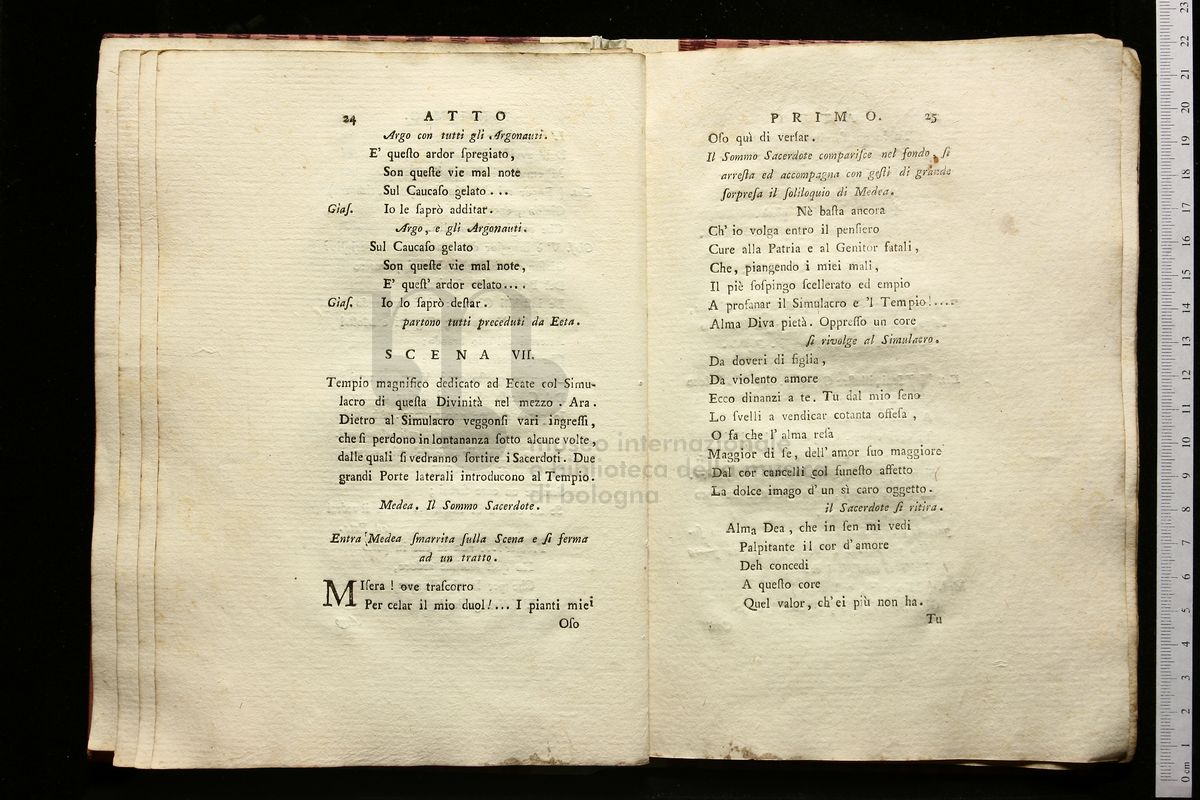 24 ATTO
Argo con tutti gli Argonauti.
E' queſto ardor ſpregiato,
Son queſte vie mal note
Sul Caucaſo gelato...
Giaſ. Io le ſaprò additar.
Argo, e gli Argonauti.
Sul Caucaſo gelato
Son queſte vie mal note,
E' queſt' ardor celato....
Giaſ. Io lo ſaprò deſtar.
partono tutti preceduti da Eeta.
SCENA VII.
Tempio magnifico dedicato ad Ecate col Simu-
lacro di queſta Divinità nel mezzo. Ara.
Dietro al Simulacro veggonſi vari ingreſſi,
che ſi perdono in lontananza ſotto alcune volte,
dalle quali ſi vedranno ſortire i Sacerdoti. Due
grandi Porte laterali introducono al Tempio.
Medea. Il Sommo Sacerdote.
Entra Medea ſmarrita ſulla Scena e ſi ferma
ad un tratto.
MIſera! ove traſcorro
Per celar il mio duol!... I pianti miei
Oſo
PRIMO. 25
Oſo quì di verſar.
Il Sommo Sacerdote compariſce nel fondo, ſi
arreſta ed accompagna con geſti di grande
ſorpreſa il ſoliloquio di Medea.
Nè baſta ancora
Ch' io volga entro il penſiero
Cure alla Patria e al Genitor fatali,
Che, piangendo i miei mali,
Il piè ſoſpingo ſcellerato ed empio
A profanar il Simulacro e 'l Tempio!....
Alma Diva pietà. Oppreſſo un core
ſi rivolge al Simulacro.
Da doveri di figlia,
Da violento amore
Ecco dinanzi a te. Tu dal mio ſeno
Lo ſvelli a vendicar cotanta offeſa,
O fa che l' alma reſa
Maggior di ſe, dell' amor ſuo maggiore
Dal cor cancelli col funeſto affetto
La dolce imago d' un sì caro oggetto.
il Sacerdote ſi ritira.
Alma Dea, che in ſen mi vedi
Palpitante il cor d' amore
Deh concedi
A queſto core
Quel valor, ch' ei più non ha.
Tu
museo internazionale
e biblioteca della musica
di bologna